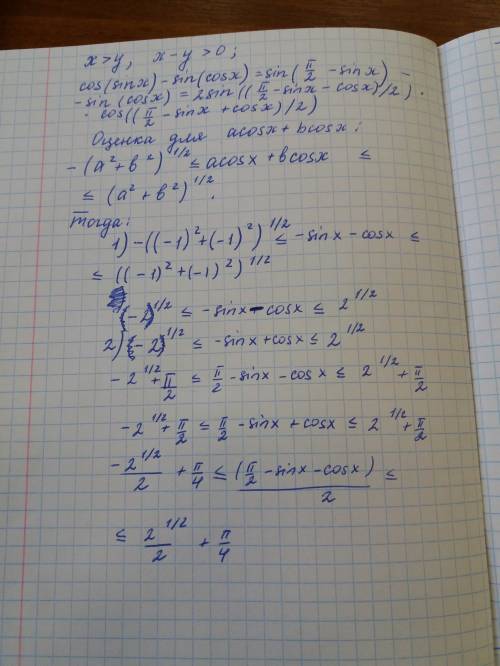 x>y, x-y>0;
cos(sinx)-sin(cosx)=sin(π/2 -sinx) -
-sin(cosx)=2sin((π/2-sinx-cosx)/2) ·
· cos((π/2-sinx+cosx)/2)
Оценка для acosx+bcosx:
-(a²+b²)^1/2 ≤ acosx+bcosx ≤
≤ (a²+b²)^1/2.
Тогда:
1) -((-1)²+(-1)²)^1/2 ≤ -sinx-cosx ≤
≤ ((-1)²+(-1)²)^1/2
(-2)^1/2 ≤ -sinx-cosx ≤ 2^1/2
2) (-2)^1/2 ≤ -sinx+cosx ≤ 2^1/2
-2^1/2+π/2 ≤ π/2-sinx-cosx ≤ 2^1/2+π/2
-2^1/2+π/2 ≤ π/2-sinx+cosx ≤ 2^1/2+π/2
-2^1/2/2 + π/4 ≤ (π/2-sinx-cosx)/2 ≤
≤ 2^1/2/2 + π/4